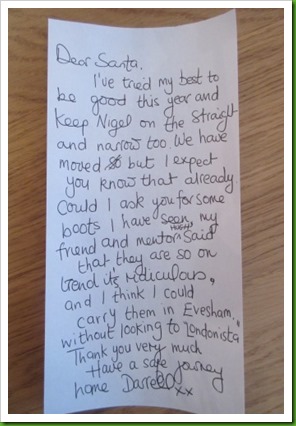 Dear Santa,
I've tried my best to
be good this year and
keep Nigel on the straight
and narrow too. We have
moved so but I expect
you know that already
Could I ask you for some
boots I have seen, my
friend and mentor said
that they are so on
trend it's ridiculous,
and I think I could
carry them in Evesham,
without looking to Londonista
Thank you very much
Have a safe journey
home xx